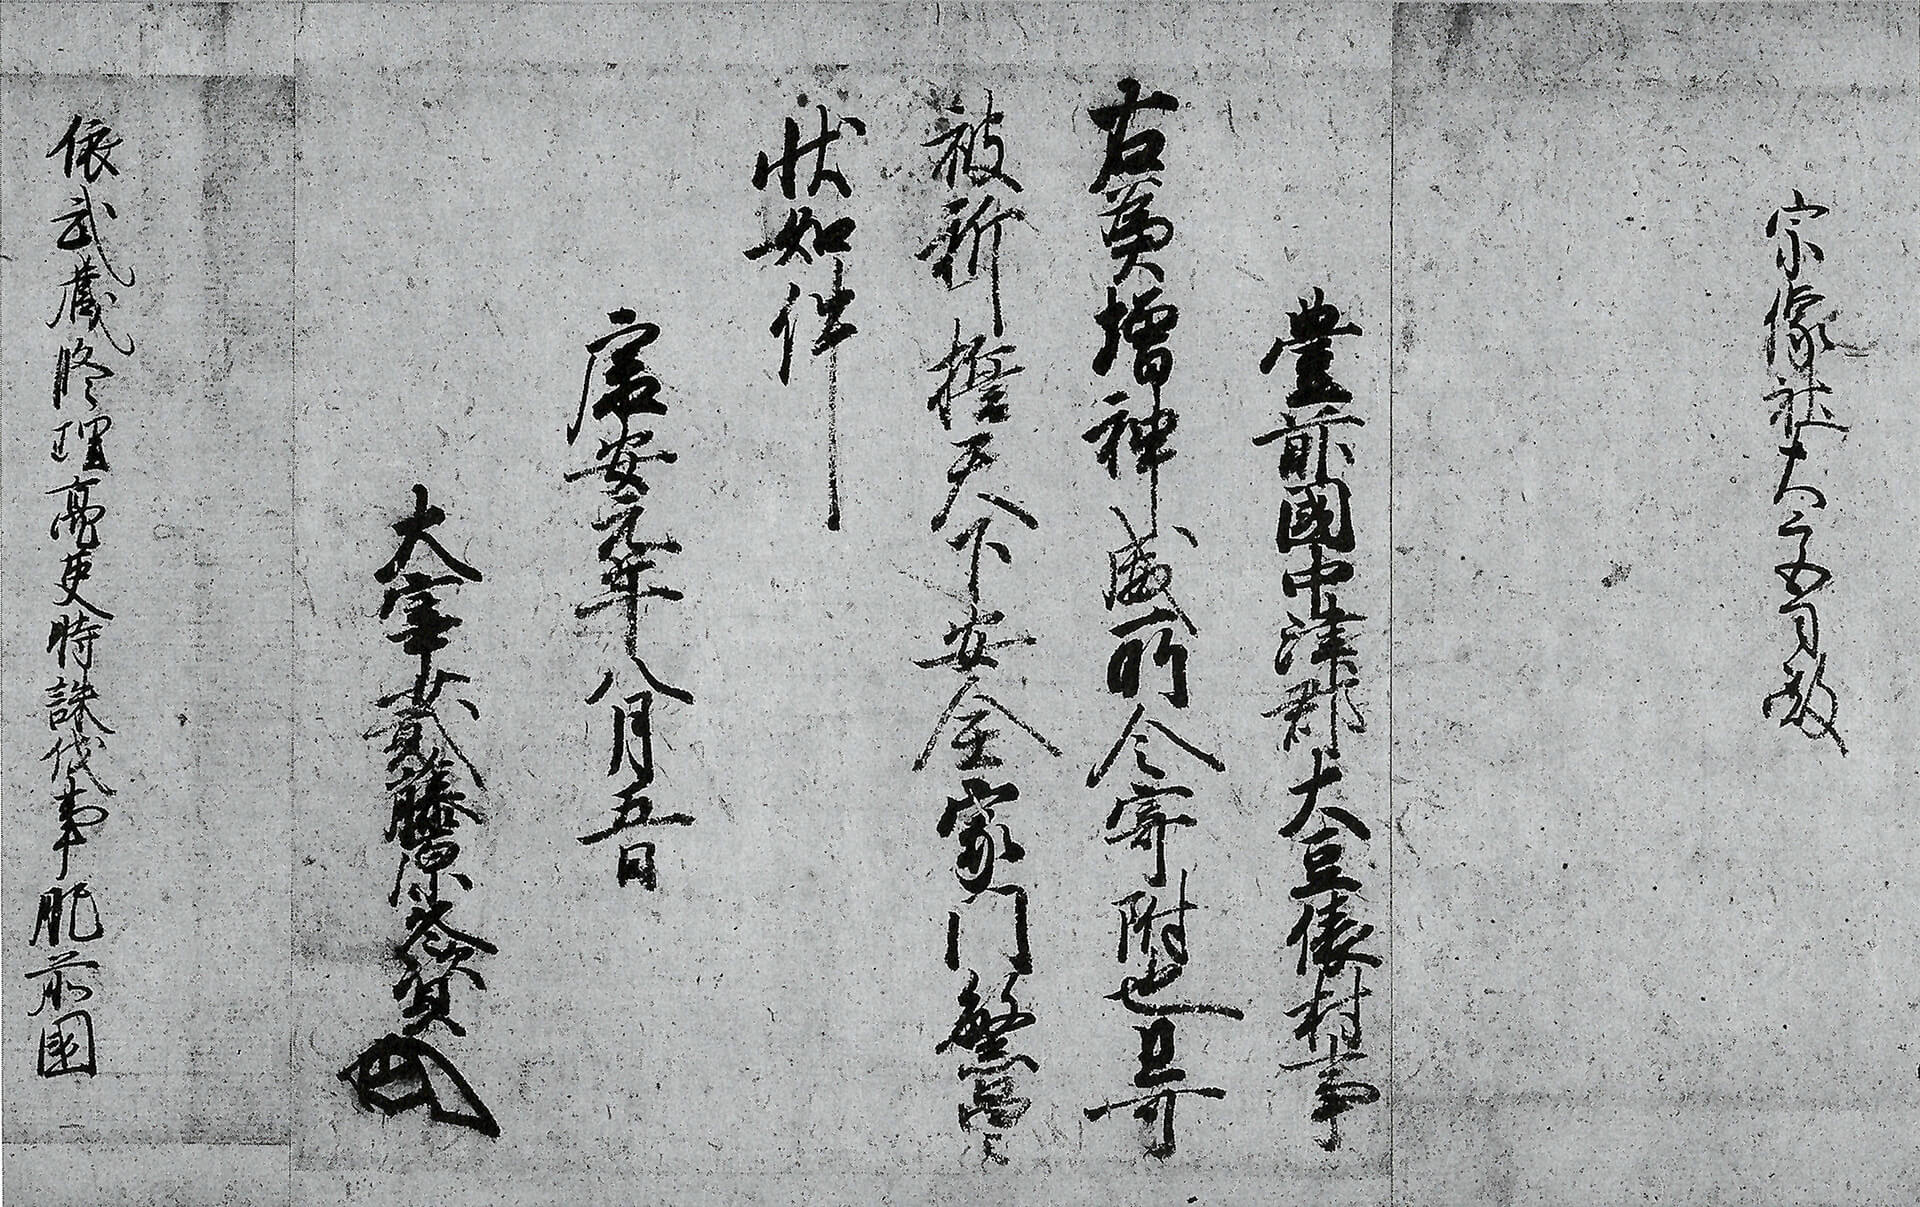 宗像社大宮司殿
豊前國中津郡大豆俵村事
右増神威所令寄附也早可
被祈禱天下安全家門繁昌之
状如件
康安元年八月五日
大宰少貳藤原冬資
依武藏修理亮英時誅伐事肥前國